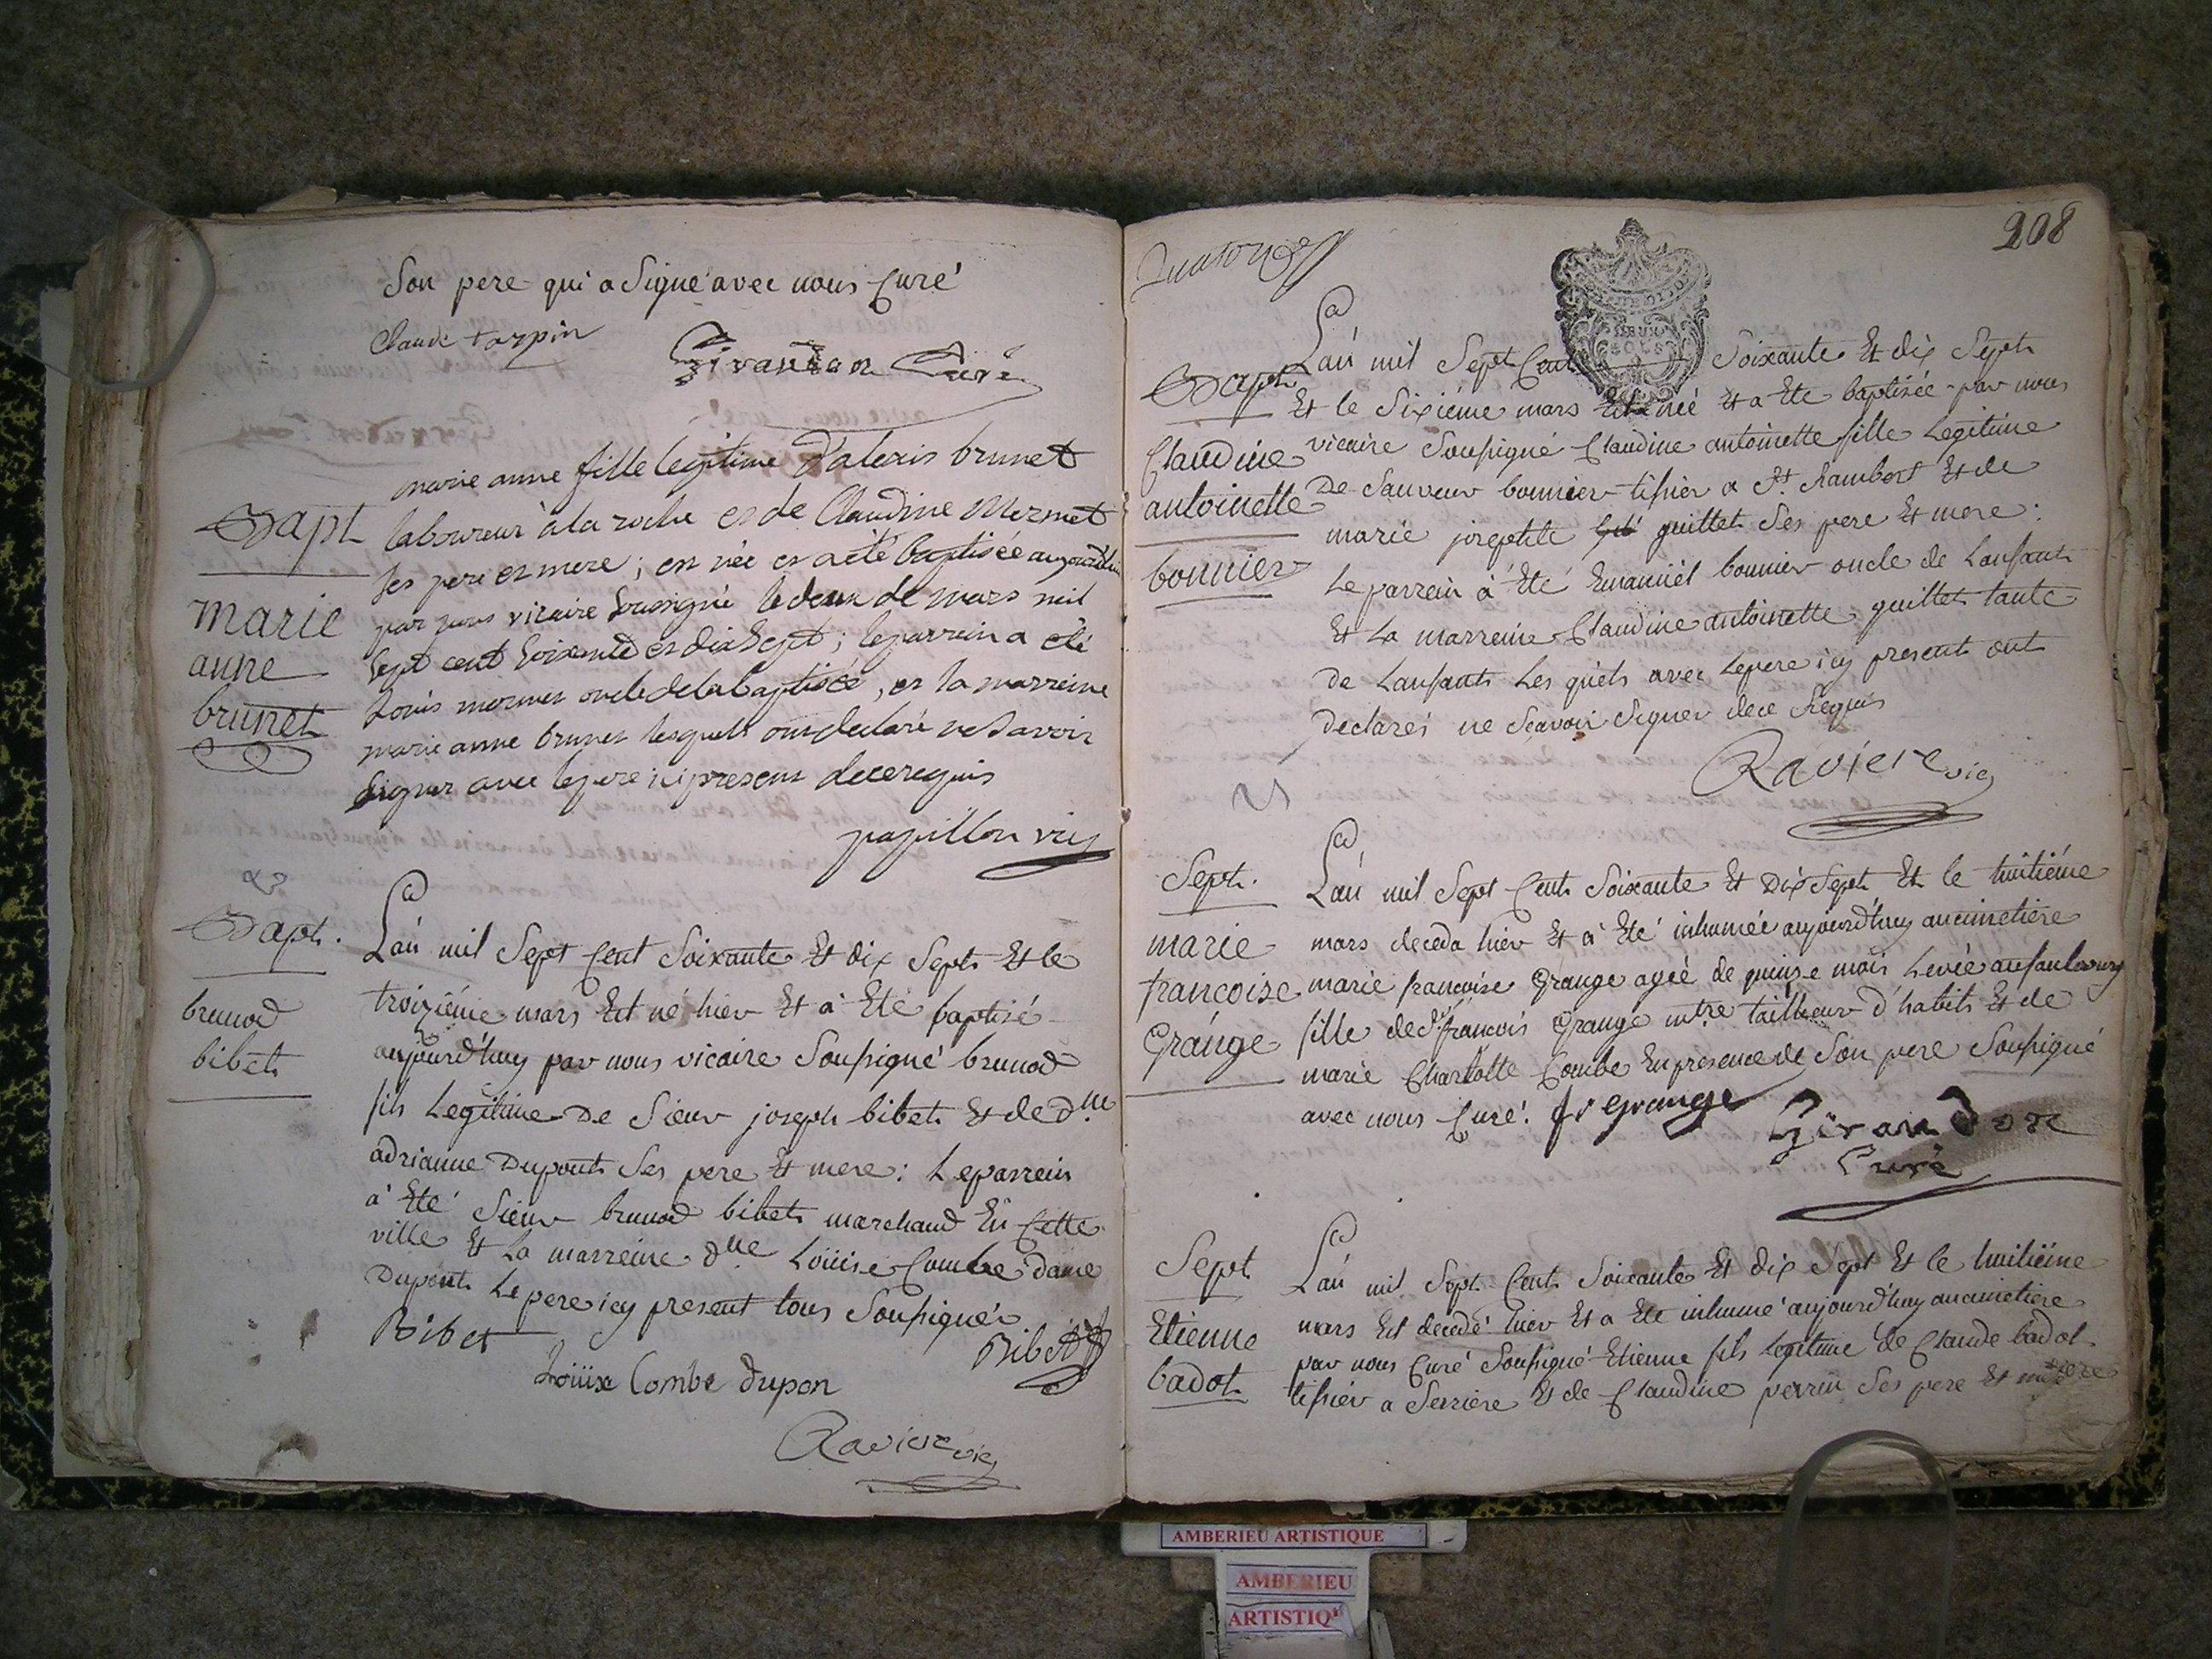 Son pere qui a Signé avec nous Curé
Claude tarpin
Girandon Curé
marie anne fille legitime d'alexis brunet
Bapt laboureur à la roche et de Claudine Mermet
ses pere et mere ; est née et a été baptisée aujourdhui
marie par nous vicaire Soussigné le deux de mars mil
anne Sept cent Soixante et dix Sept ; le parrain a été
brunet Louis mermet oncle de la baptisée, et la marreine
marie anne brunet lesquels ont declaré ne Savoir
Signer avec le pere ici present de ce requis
papillon vic
Bapt. L'an mil Sept Cent Soixante Et dix Sept Et le
brunod troiziéme mars Est né hier Et à Eté baptisé
bibet aujourd'huy par nous vicaire Soussigné brunod
fils Legitime De Sieur joseph bibet Et de dlle
adrianne Dupont Ses pere Et mere : Le parrein
à Eté Sieur brunod bibet marchand En Cette
ville Et La marreine dlle Loüise Combe dame
Dupont Le pere icy present tous Soussignés
Bibet
Bibet
Loüise Combe dupon
Raviere vic
208
L'an mil Sept Cent Soixante Et dix Sept
Bapt. Et le Sixiéme mars Est née Et a Eté baptisée par nous
Claudine vicaire Soussigné Claudine antoinette fille Legitime
antoinette De Sauveur bonnier tissier a St. Rambert Et de
marie josephte guillet Ses pere Et mere :
bonnier Le parrein à Eté Emanüel bonnier oncle de Lanfant
Et La marreine Claudine antoinette guillet tante
de Lanfant Les quels avec Le pere icy present ont
declarés ne Scavoir Signer de ce Requis
Raviere vic
Sept. L'an mil Sept Cent Soixante Et Dix Sept Et le huitiéme
marie mars deceda hier Et à Eté inhumée aujourd'huy au cimetiere
francoise marie francoise Grange agée de quinze mois Levée au faubourg
Grange fille de Sr francois Grange mtre tailleur d'habits Et de
marie Charlotte Combe En presence de Son pere Soussigné
avec nous Curé. fs Grange Girandon
Curé
Sept L'an mil Sept Cent Soixante Et dix Sept Et le huitiéme
Etienne mars Est decedé hier Et a Eté inhumé aujourd'huy au cimetiere
par nous Curé Soussigné Etienne fils Legitime de Claude badot
badot tissier a Serriere Et de Claudine perrin Ses pere Et mere
AMBERIEU ARTISTIQUE
AMBERIEU
ARTISTIQ